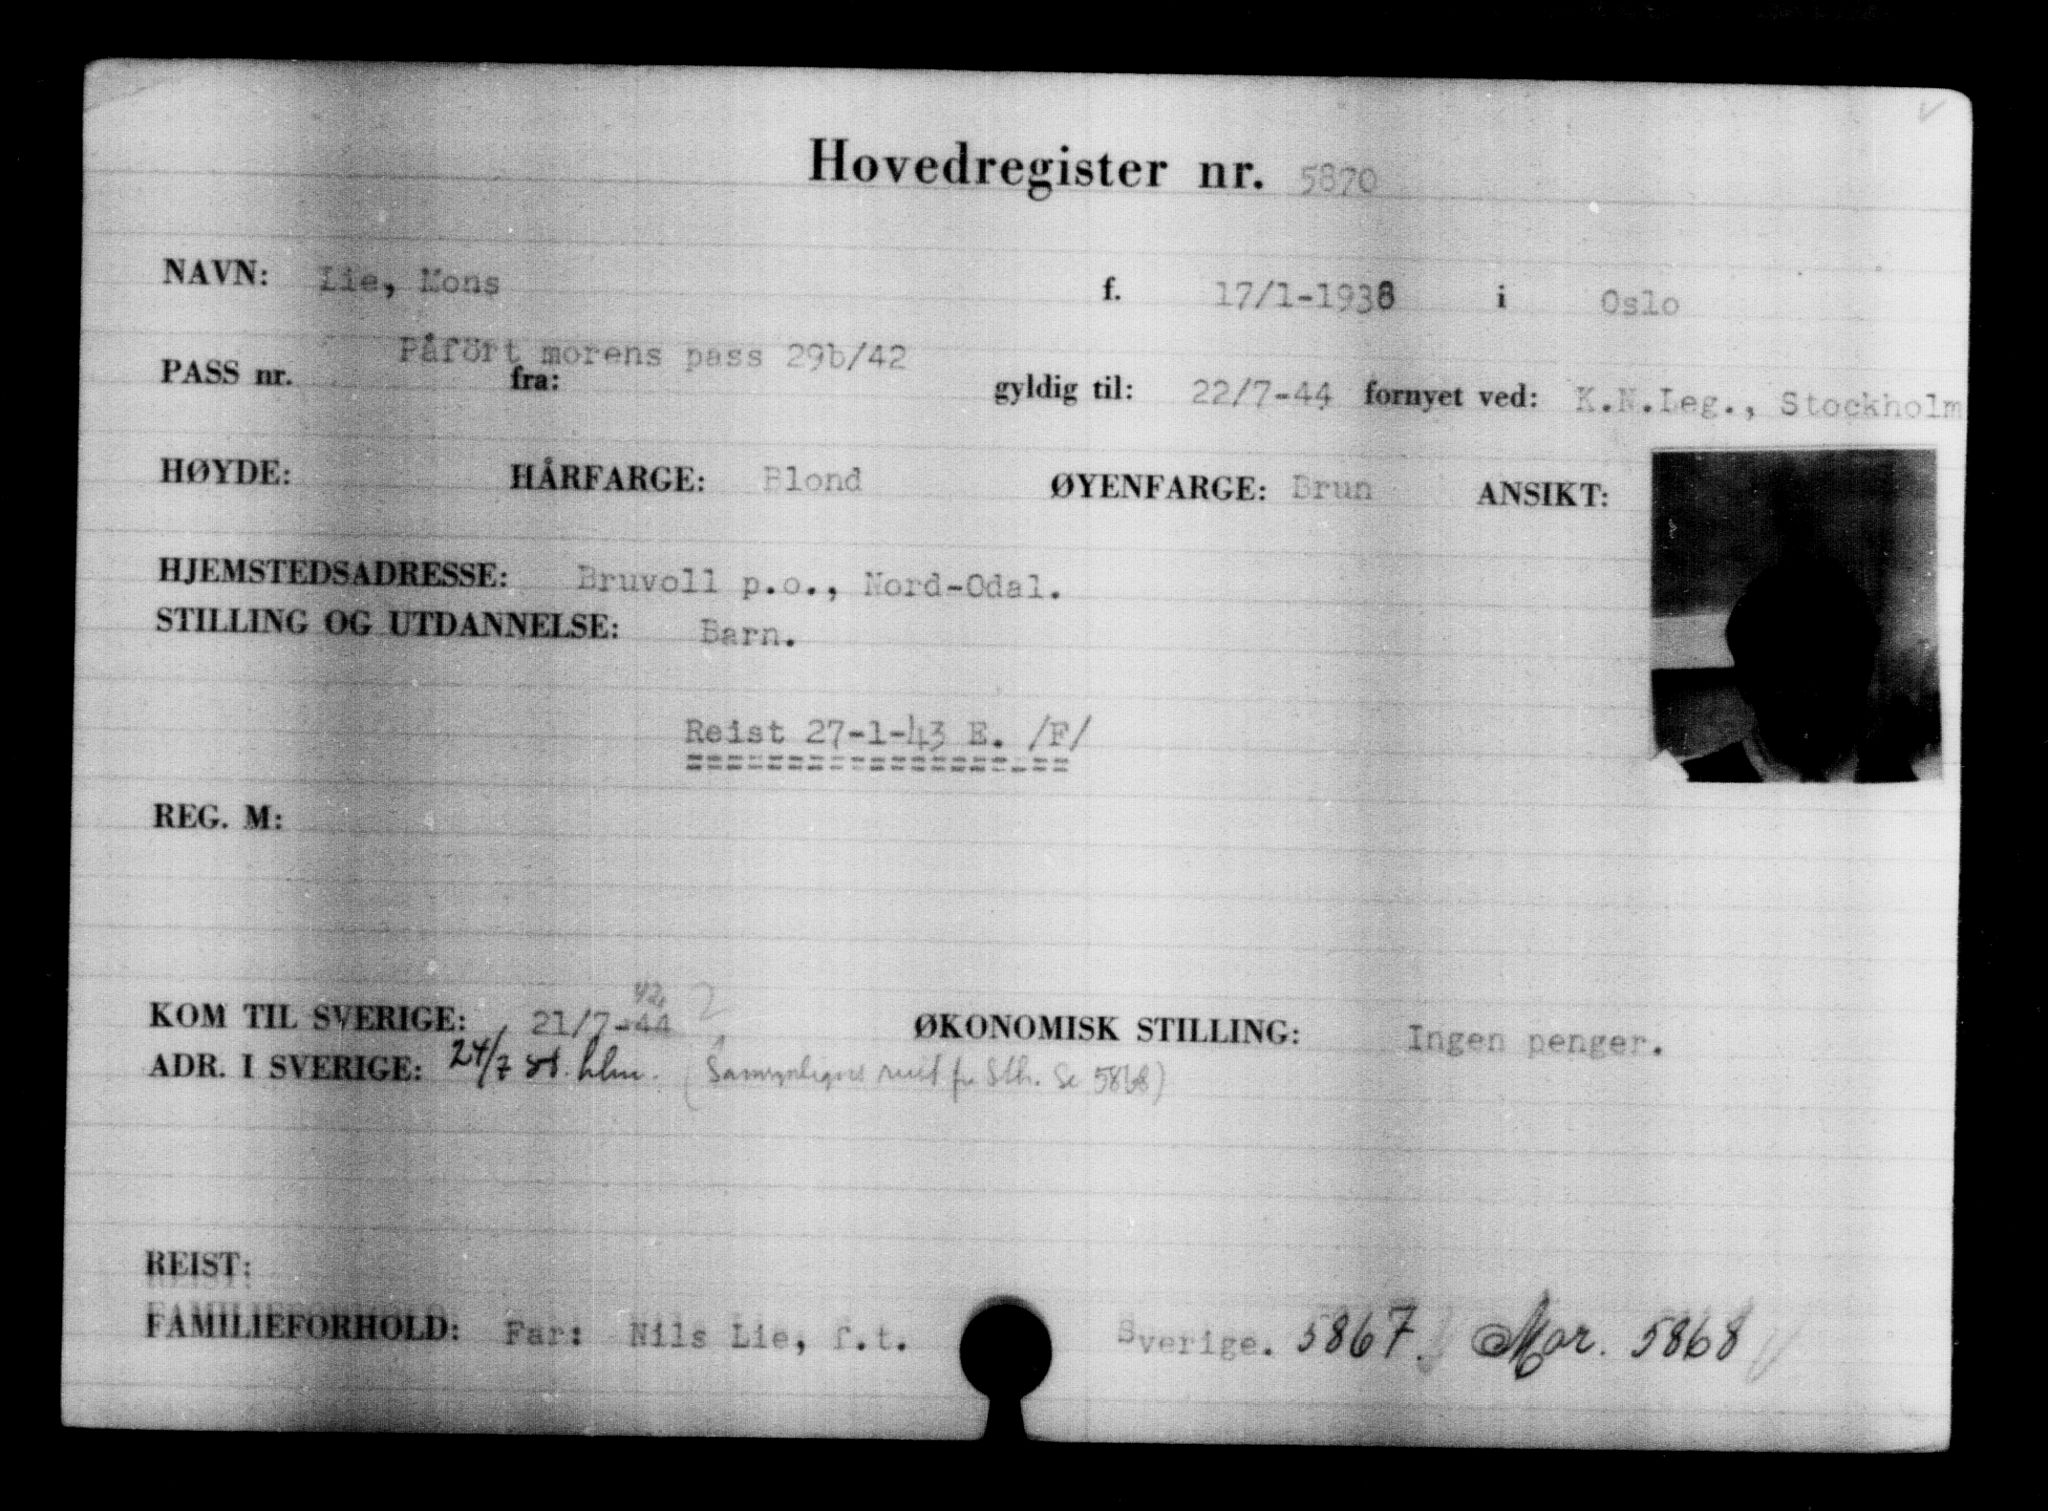 Hovedregister nr. 5870
NAVN: Lie, Mons f. 17/1-1938 i Oslo
Påfört morens pass 29b/42
PASS nr. fra: gyldig til: 22/7-44 fornyet ved: K.N.Leg., Stockholm
HØYDE: HÅRFARGE: Blond ØYENFARGE: Brun ANSIKT:
HJEMSTEDSADRESSE: Bruvoll p.o., Nord-Odal.
STILLING OG UTDANNELSE: Barn.
Reist 27-1-43 E. /F/
===================
REG. M:
42 ?
KOM TIL SVERIGE: 21/7-44 ØKONOMISK STILLING: Ingen penger.
ADR. I SVERIGE: 24/7 (Sannsynligvis reist fra Sth. Se 5868)
REIST:
FAMILIEFORHOLD: Far: Nils Lie, f.t. Sverige. 5867. Mor. 5868